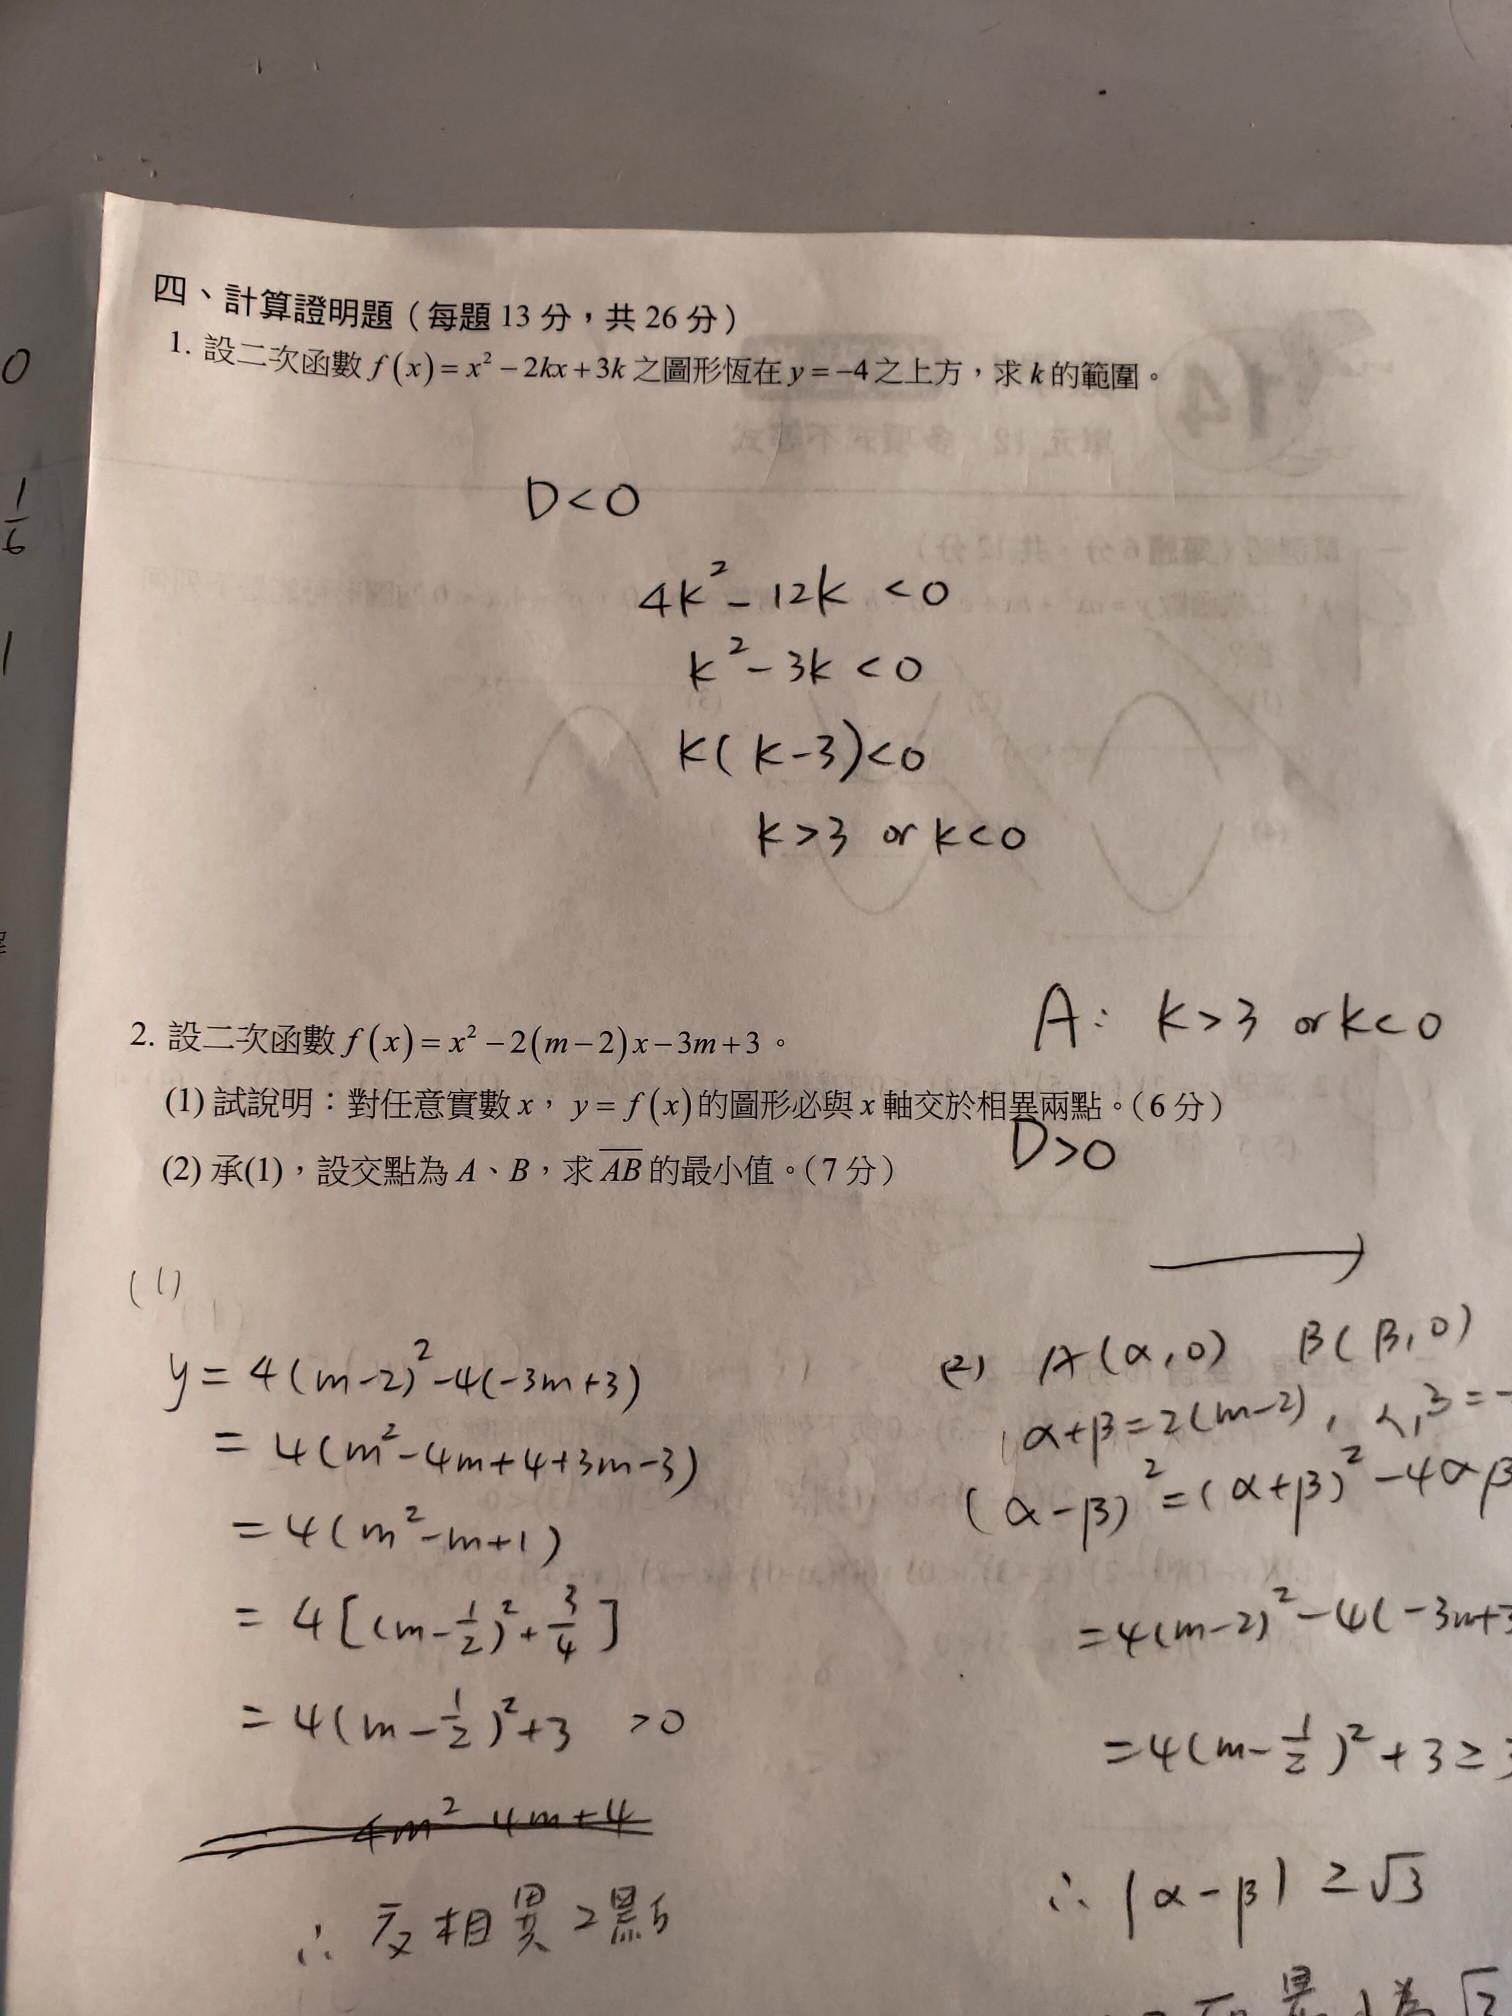 四、計算證明題（每題 13 分，共 26 分）
1. 設二次函數 f(x) = x² − 2kx + 3k 之圖形恆在 y = −4 之上方，求 k 的範圍。
D<0
4k² − 12k < 0
k² − 3k < 0
k(k−3)<0
k>3 or k<0
A: k>3 or k<0
2. 設二次函數 f(x) = x² − 2(m−2)x − 3m + 3。
(1) 試說明：對任意實數 x，y = f(x) 的圖形必與 x 軸交於相異兩點。（6 分）
D>0
(2) 承(1)，設交點為 A、B，求 AB 的最小值。（7 分）
(1)
y = 4(m−2)² −4(−3m+3)
= 4(m²−4m+4+3m−3)
= 4(m²−m+1)
= 4[(m−1/2)²+3/4]
= 4(m−1/2)²+3 >0
4m² 4m+4
∴ 交相異2點
(2) A(α,0) B(β,0)
α+β=2(m−2),
(α−β)²=(α+β)²−4αβ
=4(m−2)²−4(−3m+3
=4(m−1/2)²+3≥3
∴ |α−β| ≥√3
最小為√3
0
1/6
1